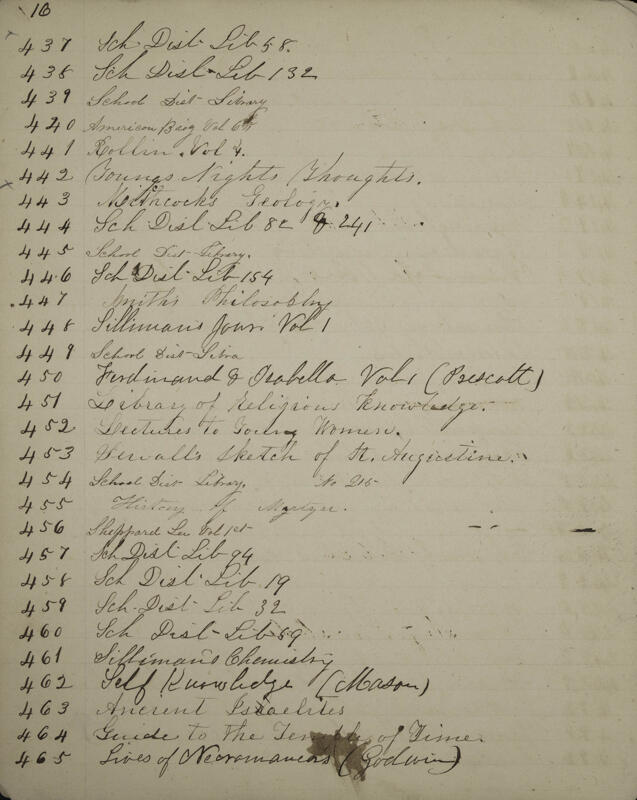 16
437 Sch Dist Lib 58
438 Sch Dist Lib 132
439 School Dist Library
440 American Biog Vol
441 Rollin. Vol
442 Youngs Nights Thoughts.
443 Geology.
444 Sch Dist Lib 82 & 241
445 School Dist Library.
446 Sch Dist Lib 154
447 Smiths Philosophy
448 Sillimans Jour Vol 1
449 School Dist Libra
450 Ferdinand & Isabella Vol 1 (Prescott)
451 Library of Religious Knowledge.
452 Lectures to Young Women.
453 Sewall's Sketch of St. Augustine.
454 School Dist Library. No 215
455 History of Martyr.
456 Sheppard Lee Vol 1st
457 Sch Dist Lib 94
458 Sch Dist Lib 19
459 Sch Dist Lib 32
460 Sch Dist Lib 59
461 Silliman's Chemistry
462 Self Knowledge (Mason)
463 Ancient Israelites
464 Guide to the Temple of Time
465 Lives of Necromancers (Godwin)